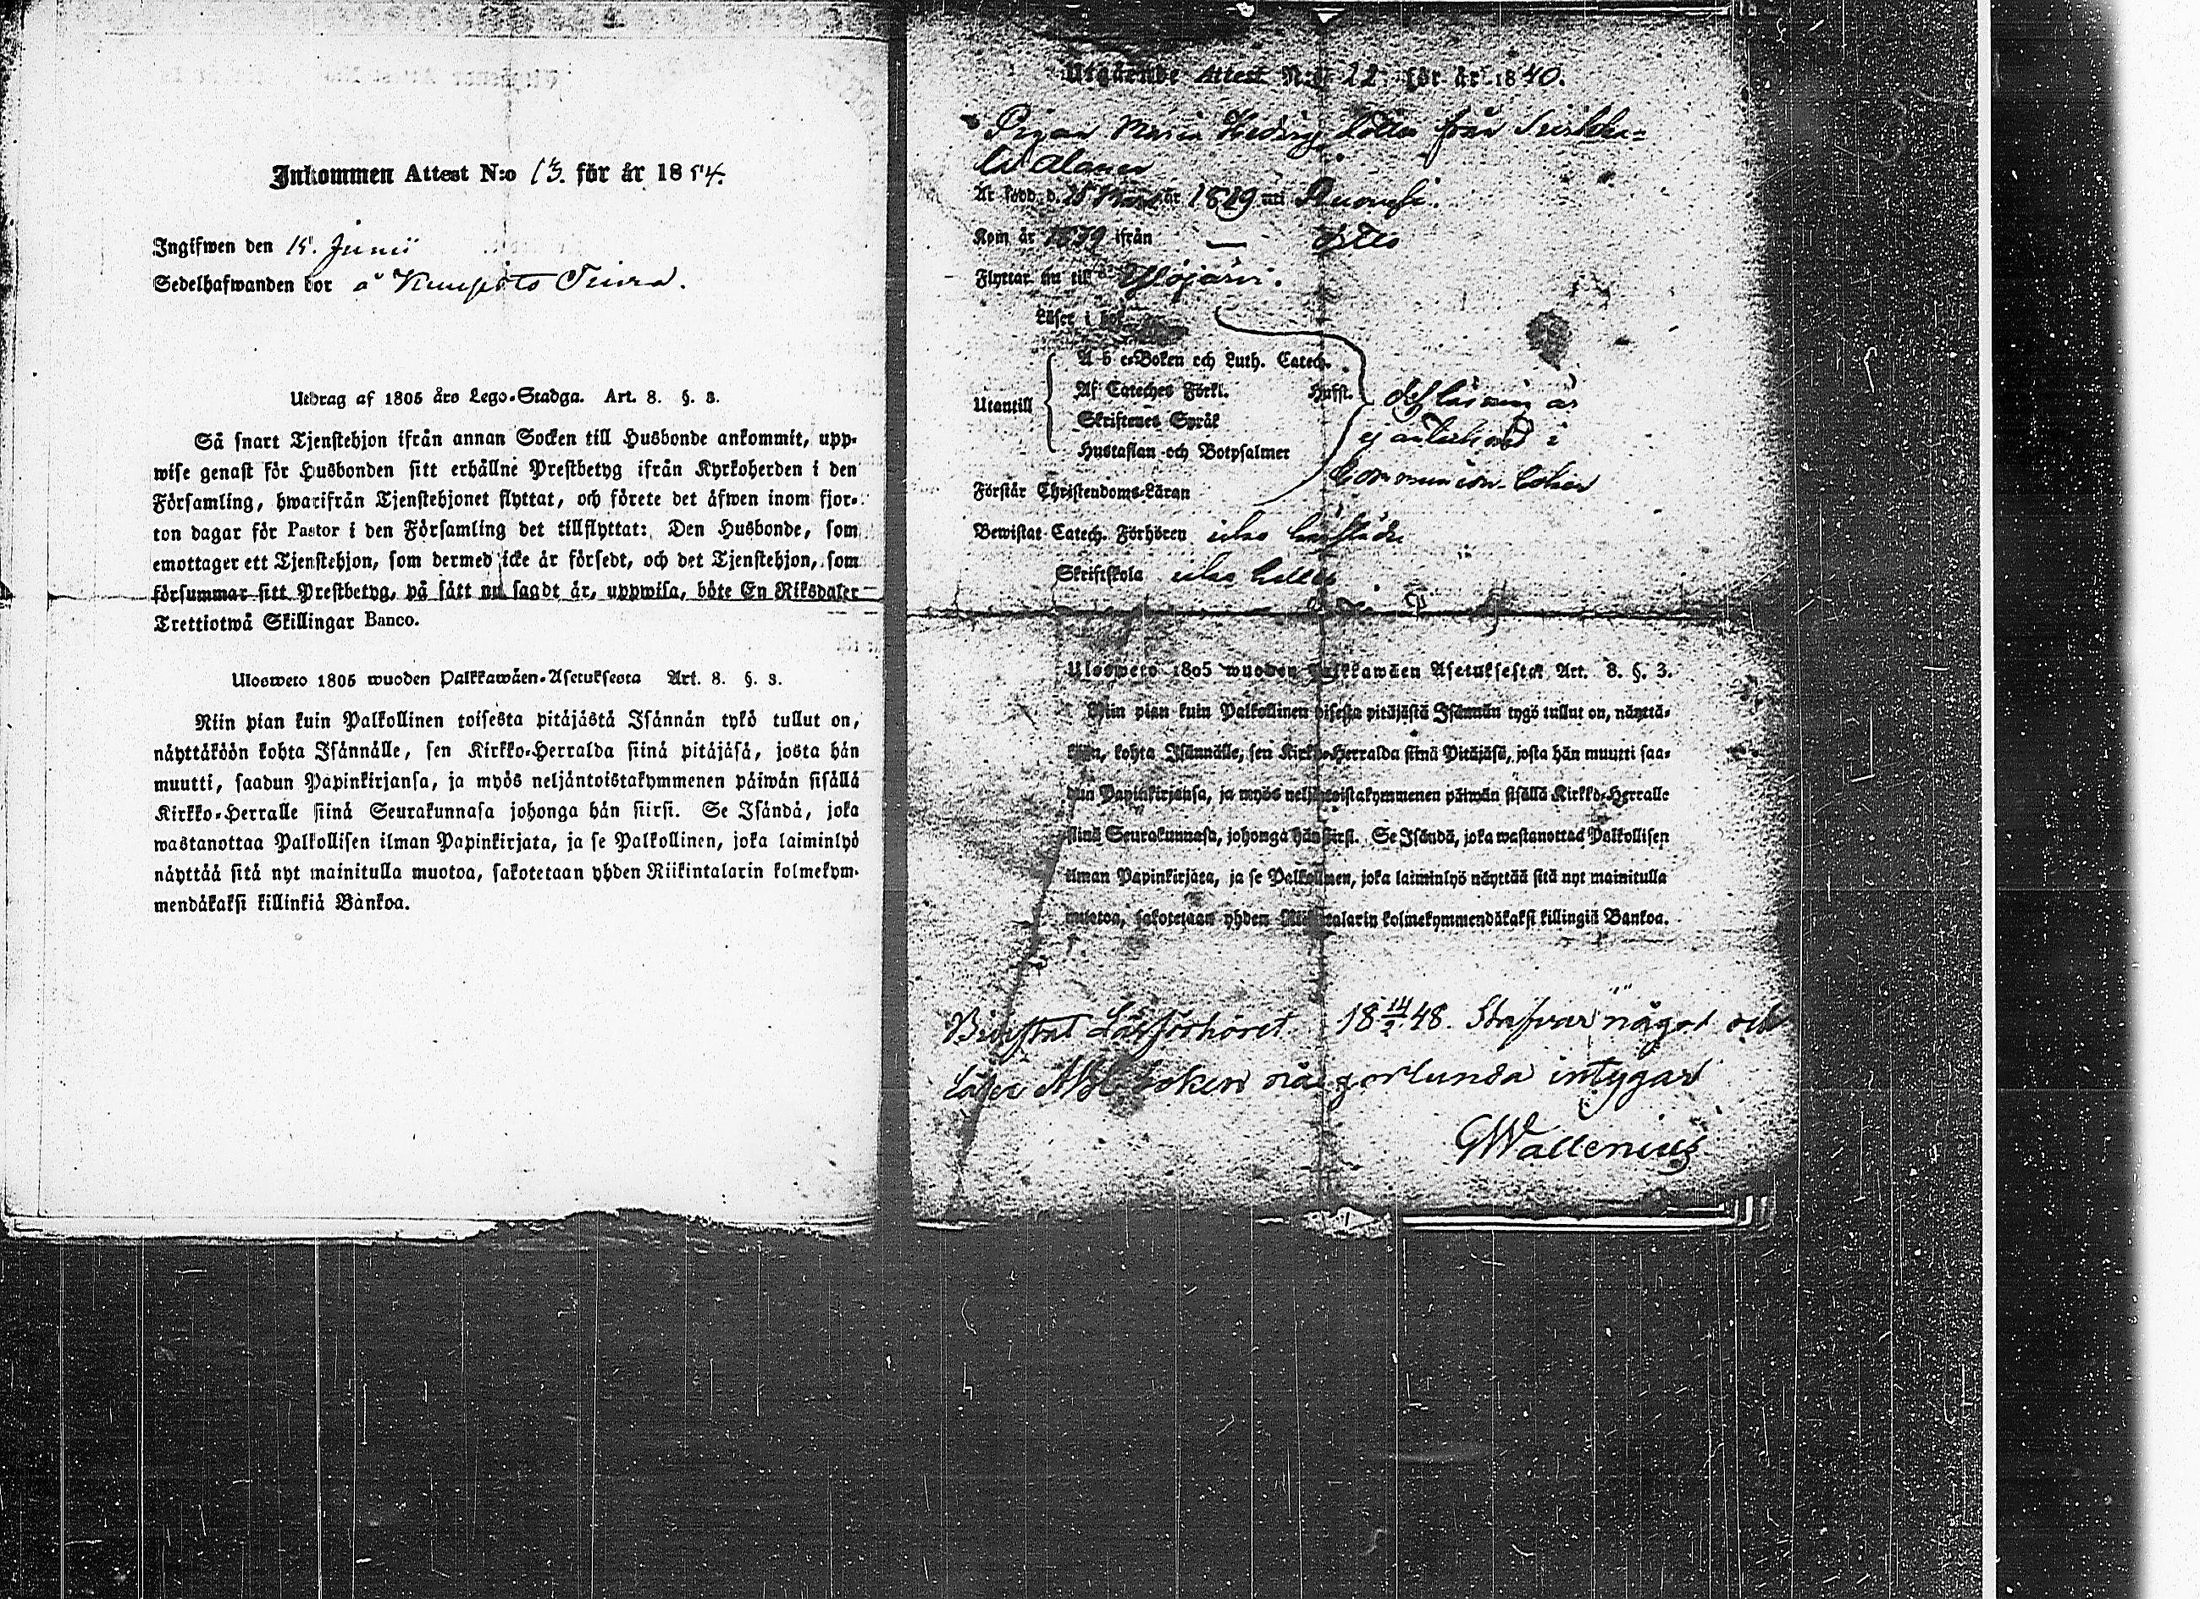 Inkommen Attest N:o 13. för år 1854.
Ingifwen den 15. Junii
Sedelhafwanden bor å
Utdrag af 1805 års Lego-Stadga. Art. 8. §. 3.
Så snart Tjenstehjon ifrån annan Socken till Husbonde ankommit, upp-
wise genast för Husbonden sitt erhållne Prestbetyg ifrån Kyrkoherden i den
Församling, hwarifrån Tjenstehjonet flyttat, och förete det äfwen inom fjor-
ton dagar för Pastor i den Församling det tillflyttat: Den Husbonde, som
emottager ett Tjenstehjon, som dermed icke är försedt, och det Tjenstehjon, som
försummar sitt Prestbetyg, på sått nu sagdt är, uppwisa, böte En Riksdaler
Trettiotwå Skillingar Banco.
Ulosweto 1805 wuoden Palkkawäen-Asetuksesta Art. 8. §. 3.
Niin pian kuin Palkollinen toisesta pitäjästä Isännän tykö tullut on,
näyttäköön kohta Isännälle, sen Kirkko-Herralda siinä pitäjäsä, josta hän
muutti, saadun Papinkirjansa, ja myös neljäntoistakymmenen päiwän sisällä
Kirkko-Herralle siinä Seurakunnasa johonga hän siirsi. Se Isändä, joka
wastanottaa Palkollisen ilman Papinkirjata, ja se Palkollinen, joka laiminlyö
näyttää sitä nyt mainitulla muotoa, sakotetaan yhden Riikintalarin kolmekym-
mendäkaksi killinkiä Bankoa.
Utgående Attest N:o 22 för år 1840.
Pigan Maria Hedvig från
Är född d. 25 år 1819 uti
Kom år 1839 ifrån —
Flyttar nu till Ylöjärvi.
Läser i bok
A b c-Boken och Luth. Catech.
Af Cateches Förkl. Husst.
Utantill
Skriftenes Språk
Hustaflan och Botpsalmer
är
ej antecknad i
Communion-boken
Förstår Christendoms-Läran
Bewistat Catech. Förhören
Skriftskola
Ulosweto 1805 wuoden Palkkawäen Asetuksesta Art. 8. §. 3.
Niin pian kuin Palkollinen toisesta pitäjästä Isännän tygö tullut on, näyttä-
köön, kohta Isännälle, sen Kirkko-Herralda siinä Pitäjäsä, josta hän muutti saa-
dun Papinkirjansa, ja myös neljäntoistakymmenen päiwän sisällä Kirkko-Herralle
siinä Seurakunnasa, johonga hän siirsi. Se Isändä, joka wastanottaa Palkollisen
ilman Papinkirjata, ja se Palkollinen, joka laiminlyö näyttää sitä nyt mainitulla
muotoa, sakotetaan yhden Riikintalarin kolmekymmendäkaksi killingiä Bankoa.
Bevistat Läsförhöret 18 14/2 48. Stafvar något och
Läser Abc boken någorlunda intygar
GWallenius